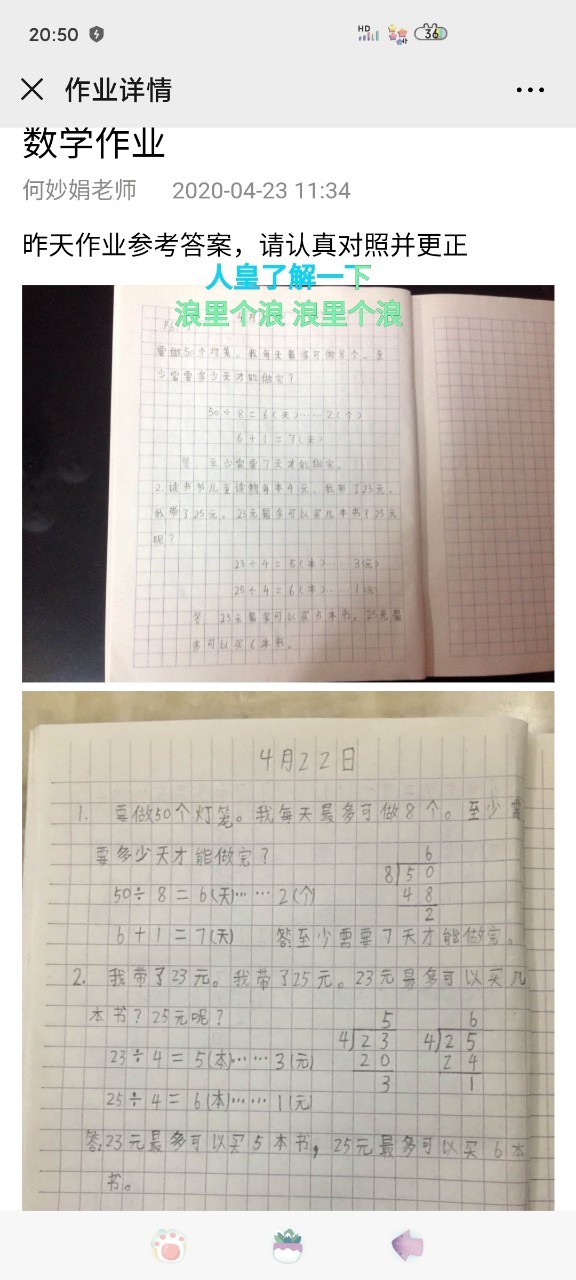 20:50
HD
36
作业详情
数学作业
何妙娟老师 2020-04-23 11:34
昨天作业参考答案，请认真对照并更正
人皇了解一下
浪里个浪 浪里个浪
要做50个灯笼。我每天最多可做8个。至
少需要多少天才能做完？
50÷8=6(天)……2(个)
6+1=7(天)
答：至少需要7天才能做完。
2.读书节儿童读物每本4元。我带了23元。
我带了25元。23元最多可以买几本书？25元
呢？
23÷4=5(本)……3(元)
25÷4=6(本)……1(元)
答：23元最多可以买5本书，25元最
多可以买6本书。
4月22日
1. 要做50个灯笼。我每天最多可做8个。至少需
要多少天才能做完？
6
8 50
50÷8=6(天)……2(个)
48
2
6+1=7(天) 答:至少需要7天才能做完。
2. 我带了23元。我带了25元。23元最多可以买几
本书？25元呢？
5 6
4 23 4 25
23÷4=5(本)……3(元)
20 24
3 1
25÷4=6(本)……1(元)
答:23元最多可以买5本书，25元最多可以买6本
书。